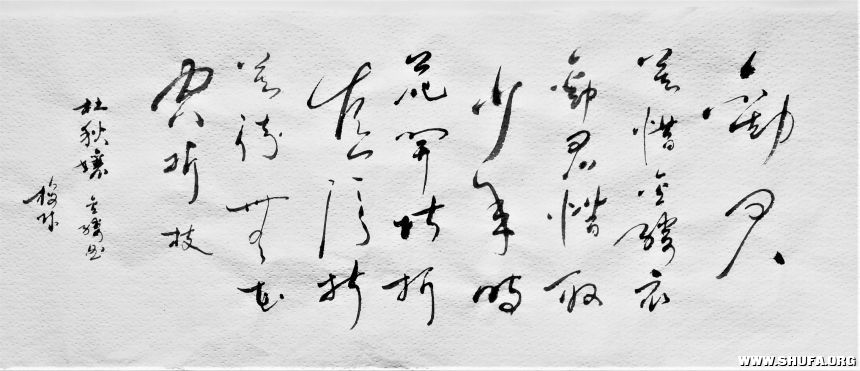 勸君
莫惜金縷衣
勸君惜取
少年時
花開堪折
直須折
莫待無花
空折枝
杜秋孃金縷曲
WWW.SHUFA.ORG